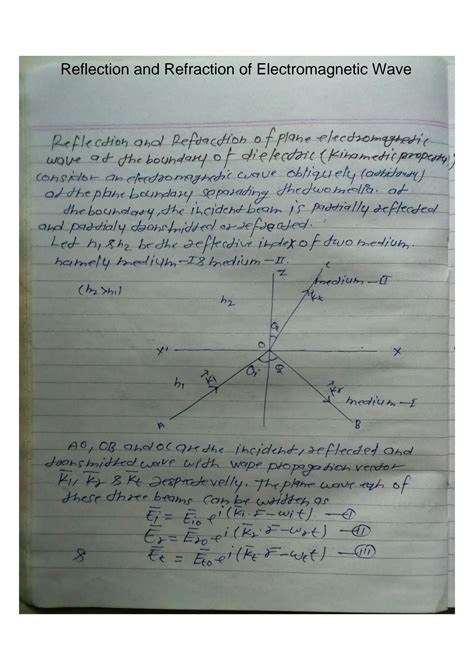 Reflection and Refraction of Electromagnetic Wave
Reflection and Refraction of plane electromagnetic
wave at the boundary of dielectric (Kinametic property)
consider an electromagnetic wave obliquely (arbitrary)
at the plane boundary separating the two media. at
the boundary, the incident beam is partially reflected
and partialy transmitted or refracted.
Let n1 & n2 be the reflective index of two medium.
namely medium-I & medium-II.
(n2>n1)
Z
C
medium-II
n2
kt
θt
X'
O
X
n1
ki
θi
θr
kr
medium-I
A
B
AO, OB and OC are the incident, reflected and
transmitted wave with wave propagation vector
K̄i, K̄r & K̄t respectevelly. The plane wave eqn of
these three beams can be written as
Ēi = Ēio e^i(K̄i·r̄-wit) -(I)
Ēr = Ēro e^i(K̄r·r̄-wrt) -(II)
& Ēt = Ēto e^i(K̄t·r̄-wtt) -(III)